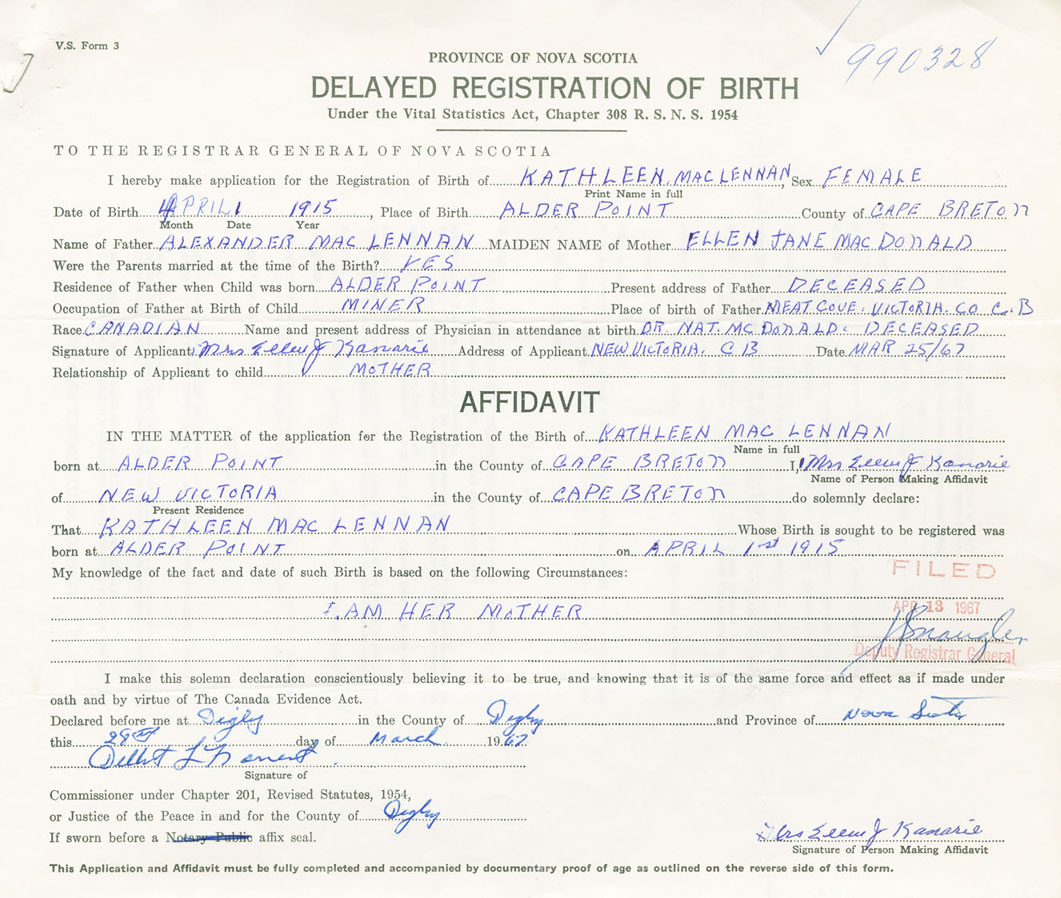 V.S. Form 3
990328
PROVINCE OF NOVA SCOTIA
DELAYED REGISTRATION OF BIRTH
Under the Vital Statistics Act, Chapter 308 R. S. N. S. 1954
TO THE REGISTRAR GENERAL OF NOVA SCOTIA
I hereby make application for the Registration of Birth of KATHLEEN MACLENNAN, Sex FEMALE
Print Name in full
Date of Birth APRIL 1 1915, Place of Birth ALDER POINT County of CAPE BRETON
Month Date Year
Name of Father ALEXANDER MAC LENNAN MAIDEN NAME of Mother ELLEN JANE MACDONALD
Were the Parents married at the time of the Birth? YES
Residence of Father when Child was born ALDER POINT Present address of Father DECEASED
Occupation of Father at Birth of Child MINER Place of birth of Father MEAT COVE. VICTORIA. CO C.B
Race CANADIAN Name and present address of Physician in attendance at birth DR NAT. MCDONALD. DECEASED
Signature of Applicant Mrs Ellen J Kanarie Address of Applicant NEW VICTORIA. C B Date MAR 25/67
Relationship of Applicant to child MOTHER
AFFIDAVIT
IN THE MATTER of the application for the Registration of the Birth of KATHLEEN MAC LENNAN
Name in full
born at ALDER POINT in the County of CAPE BRETON I, Mrs Ellen J Kanarie
Name of Person Making Affidavit
of NEW VICTORIA in the County of CAPE BRETON do solemnly declare:
Present Residence
That KATHLEEN MAC LENNAN Whose Birth is sought to be registered was
born at ALDER POINT on APRIL 1st 1915
My knowledge of the fact and date of such Birth is based on the following Circumstances:
FILED
I. AM HER MOTHER
APR 13 1967
Deputy Registrar General
I make this solemn declaration conscientiously believing it to be true, and knowing that it is of the same force and effect as if made under
oath and by virtue of The Canada Evidence Act.
Declared before me at Digby in the County of Digby and Province of Nova Scotia
this 29th day of March 1967
Signature of
Commissioner under Chapter 201, Revised Statutes, 1954,
or Justice of the Peace in and for the County of Digby
If sworn before a Notary Public affix seal.
Mrs Ellen J Kanarie
Signature of Person Making Affidavit
This Application and Affidavit must be fully completed and accompanied by documentary proof of age as outlined on the reverse side of this form.